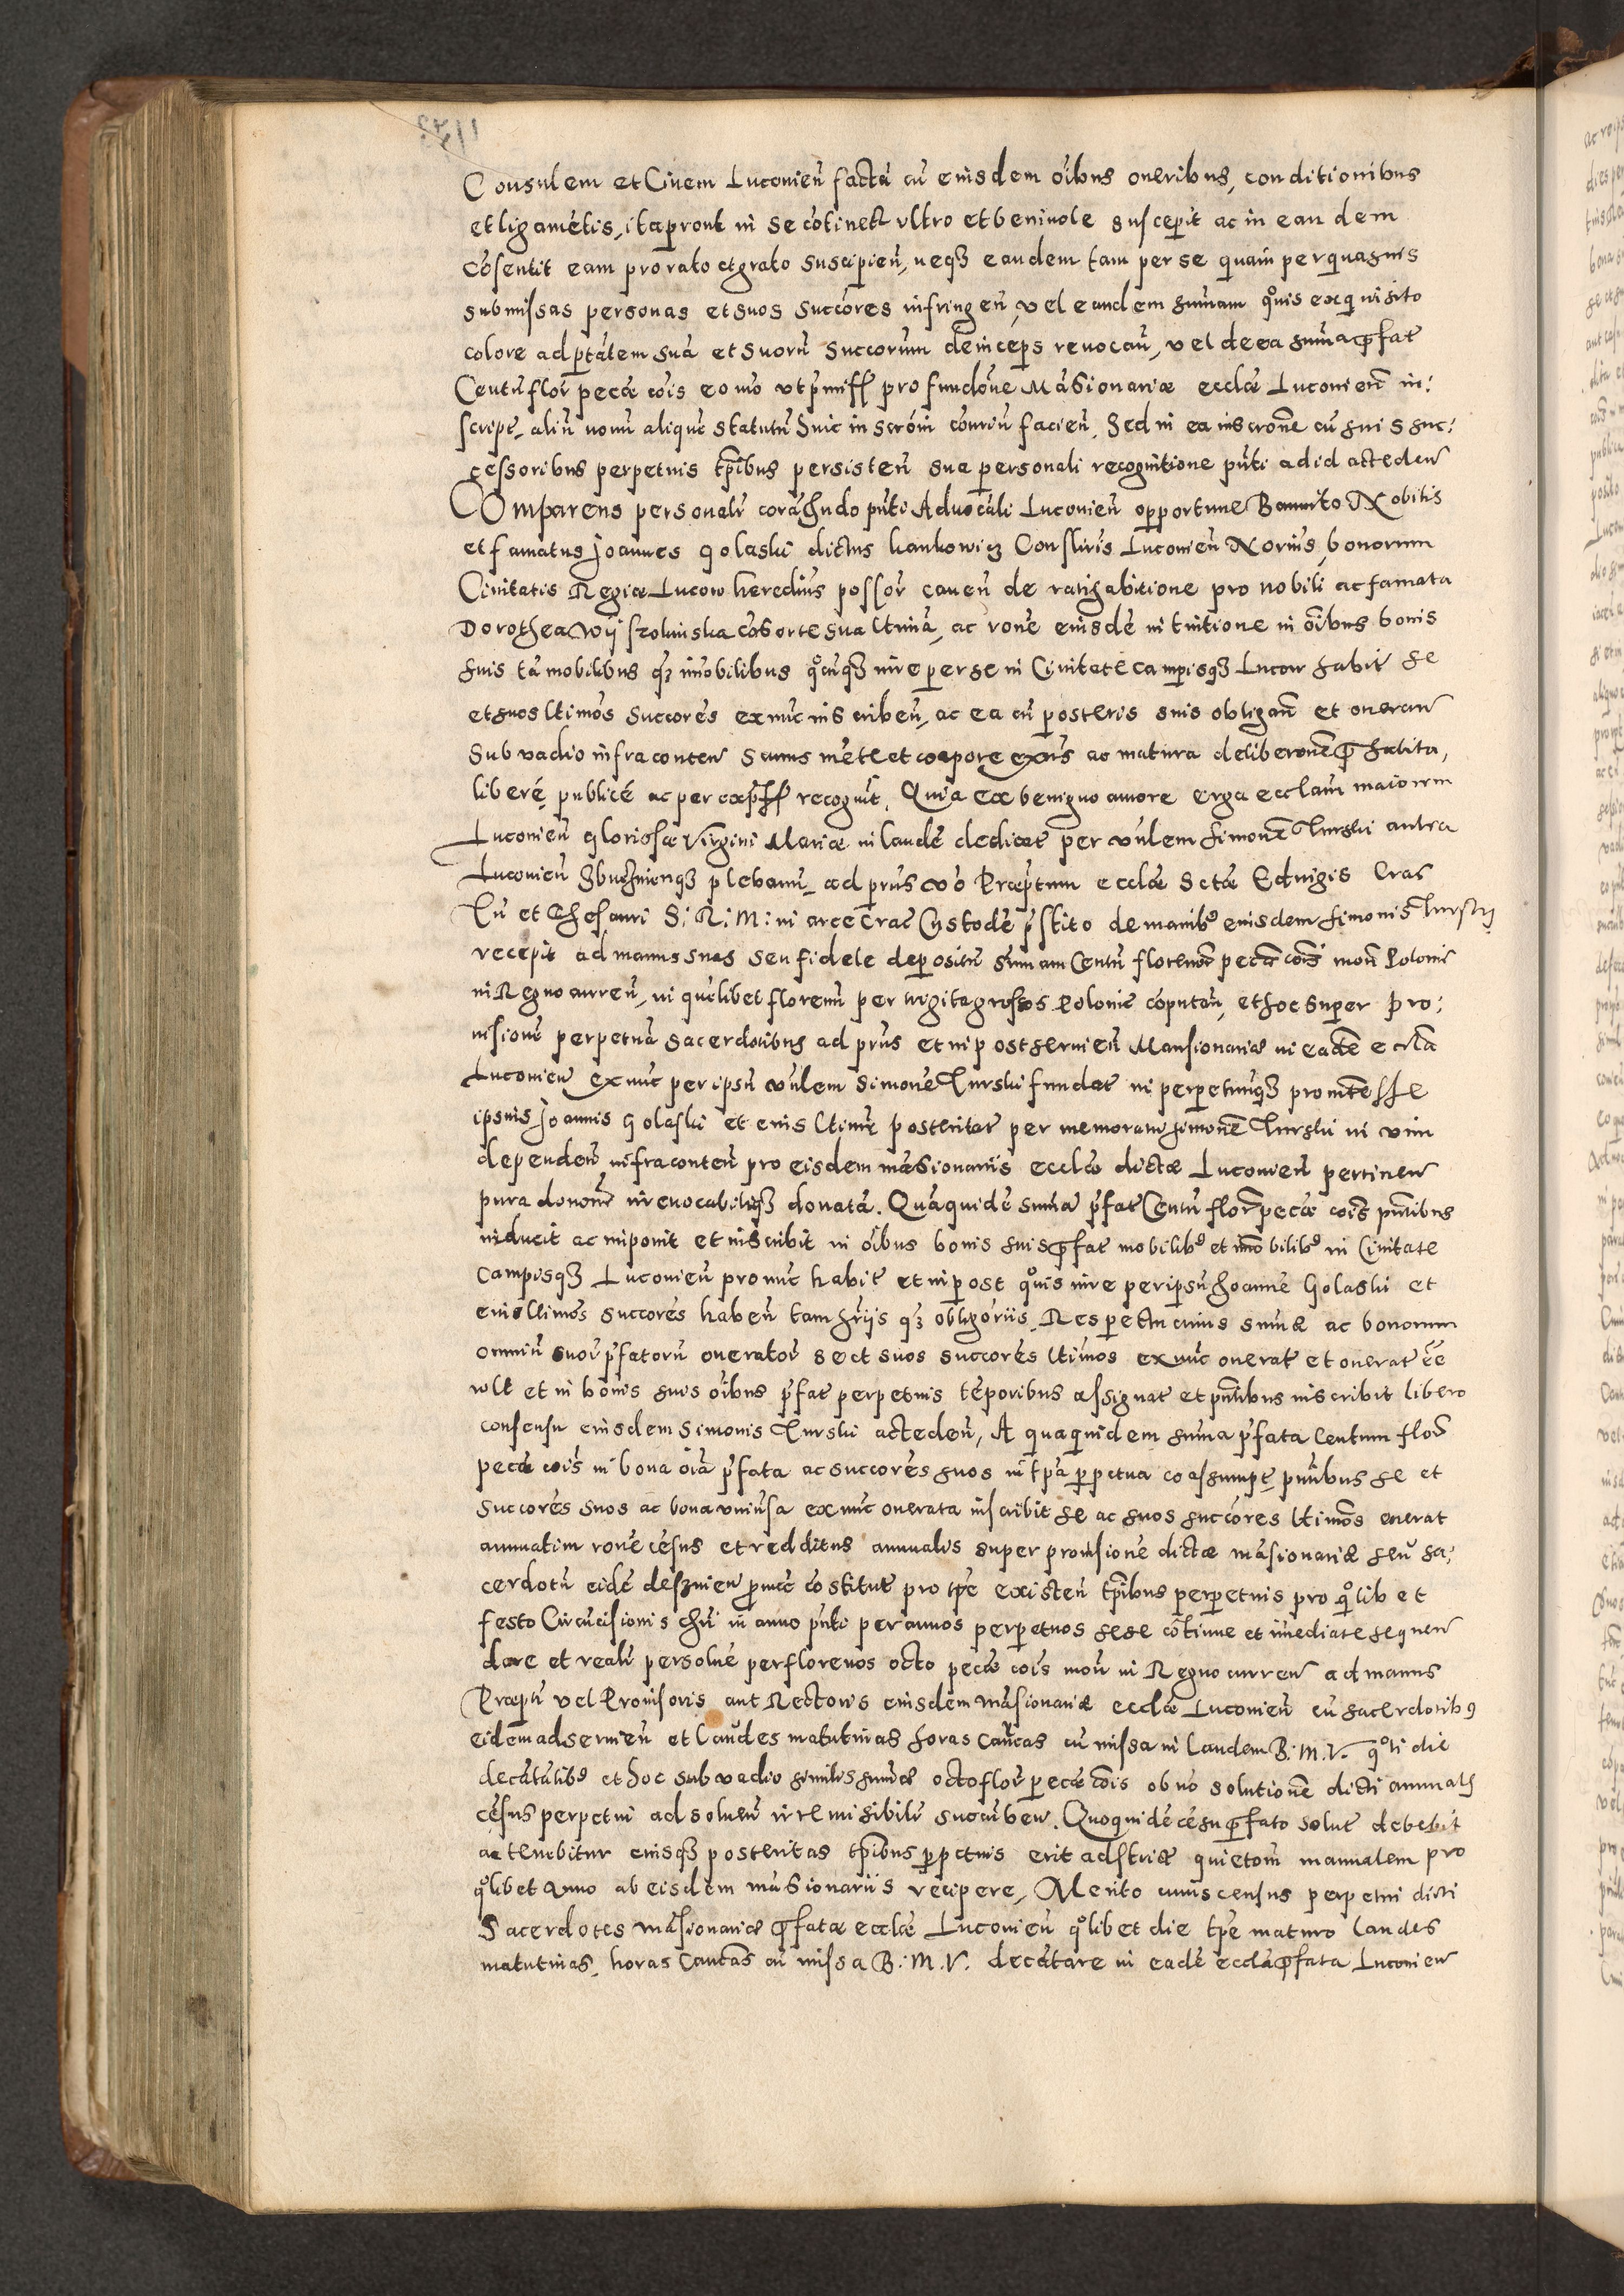 Consulem et Civem Luconien̄ factā cū eiusdem oībus oneribus, conditionibus
et ligamētis, ita prout in se cōtinet ultro et benivole suscepit ac in eandem
cōsentit eam pro rato et grato suscipien̄, neqꝫ eandem tam per se quam per quasvis
submissas personas et suos succōres infringen̄, vel eandem sum̄am quovis exquisito
colore ad ptātem suā et suorū succorum deinceps revocan̄, vel de ea sum̄a p̄fat
Centū flor pecæ cōis eo mō ut p̄miss pro fundōne Māsionariæ ecclæ Luconien̄ in:
script, aliū nonū aliquē statutū huic inscrōni cōtriū facien̄. Sed in ea inscrōne cū suis suc:
cessoribus perpetuis tp̄ibus persisten̄ sua personali recognitione pn̄ti ad id acteden
Comparens personalr corā Iudō pn̄ti Advocāli Luconien̄ opportune Bannito Nobilis
et famatus Joannes Golaski dictus kaukowicz Consliris Luconien̄ Novius, bonorum
Civitatis Regiæ Lucow heredius possor caven̄ de ratihabitione pro nobili ac famata
Dorothea Wyszolinska cōsorte sua ltima, ac rōne eiusdē intuitione in oībus bonis
suis tā mobilibus qꝫ im̄obilibus qōcūqꝫ iure per se in Civitate campisqꝫ Lucow habit se
et suos ltimos succōres ex nūc inscriben̄, ac ea cū posteris suis obligan̄ et oneran
Sub vadio infra conten Sanus mēte et corpore exn̄s ac matura deliberōne p̄habita,
liberé publicé ac per exp̄ss recognit, Quia ex benigno amore erga ecclam maiorem
Luconien̄ gloriosæ Virgini Mariæ in laudē dedicat per vn̄lem Simonē Turski antea
Luconien̄ Zbuchnienqꝫ plebanū ad p̄ns vō Præptum ecclæ Sctæ Edvigis Crac
Lū et Thesauri S: R: M: in arce Crac Custodē p̄stito de manib9 eiusdem Simonis Turskij
recepit ad manus suas seu fidele depositū sum̄am Centū florenor pecæ cōis mon̄ Polonic
in Regno curren̄, in quēlibet florenū per trigīta grossos Polonic cōputan̄, et hoc super pro:
visione perpetuā Sacerdotibus ad p̄ns et in post servien̄ Mansionariæ in eadē eccla
Luconien ex nūc per ipsū vn̄lem Simonē Turski fundat in perpetuūqꝫ
ipsius Joannis Golaski et eius ltime posteritat per memorat Simonē Turski in vim
dependen̄ infraconten̄ pro eisdem māsionariis ecclæ dictæ Luconien̄ pertinen
pura donōne irrevocabiliqꝫ donatā. Quāquidē sum̄a p̄fat Centū flor pecæ cōis pn̄tibus
inducit ac imponit et inscribit in oībus bonis suis p̄fat mobilib9 et im̄obilib9 in Civitate
campisqꝫ Luconien̄ pro nūc habit et in post qōvis iure per ipsū Joannē Golaski et
eius ltimos succōres haben̄ tam hr̄iis qꝫ obligōriis. Respectu cuius sum̄æ ac bonorum
omniū suor p̄fatorū onerator se et suos succōres ltimos ex nūc onerat et onerat ēē
vult et in bonis suis oībus p̄fat perpetuis tēporibus assignat et pn̄tibus inscribit libero
consensu eiusdem Simonis Turski acteden̄, A quaquidem sum̄a p̄fata Centum flor
pecæ cōis in bona oīa p̄fata ac succōres suos in tp̄a perpetua coassumpt pn̄tibus se et
succōres suos ac bona univsa ex nūc onerata inscribit se ac suos succōres ltimos onerat
annuatim rōne cēsus et redditus annualis super provisione dictæ māsionariæ seu sa:
cerdotū eidē deservien p̄ nūc cōstitut pro tp̄e existen̄ tp̄ibus perpetuis pro qōlibet
festo Circūcisionis Chri in anno pn̄ti per annos perpetuos sese cōtinue et im̄ediate sequen
dare et realr persolvē per florenos octo pecæ cōis mon̄ in Regno curren ad manus
Præpti vel Provisoris aut Rectoris eiusdem māsionariæ ecclæ Luconien̄ cū sacerdotib9
eidem adservien̄ et laudes matutinas horas can̄cas cū missa in laudem B: M. V. qōtidie
decātātib9 et hoc sub vadio similis sum̄æ octo flor pecæ cōis ob nō solutionē dicti annuals
cēsus perpetui ad solven̄ irremisibilr succūben. Quoquidē cēsu p̄fato solut debebit
ac tenebitur eiusqꝫ posteritas tp̄ibus perpetuis erit adstricta quietom manualem pro
qōlibet anno ab eisdem māsionariis recipere, Merito cuius census perpetui dicti
Sacerdotes māsionariæ p̄fatæ ecclæ Luconien̄ qōlibet die tp̄e maturo laudes
matutinas, horas Can̄cas cū missa B: M. V. decātare in eadē eccla p̄fata Luconien